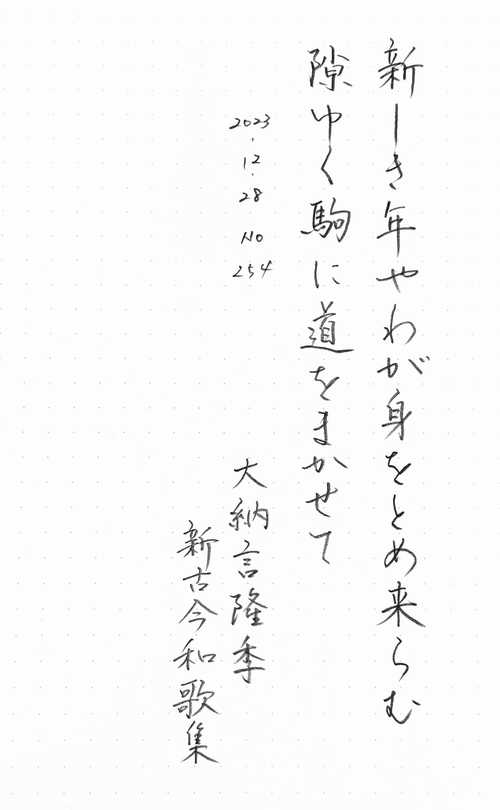 新しき年やわが身をとめ来らむ
隙ゆく駒に道をまかせて
2023.12.28 No 254
大納言隆季
新古今和歌集